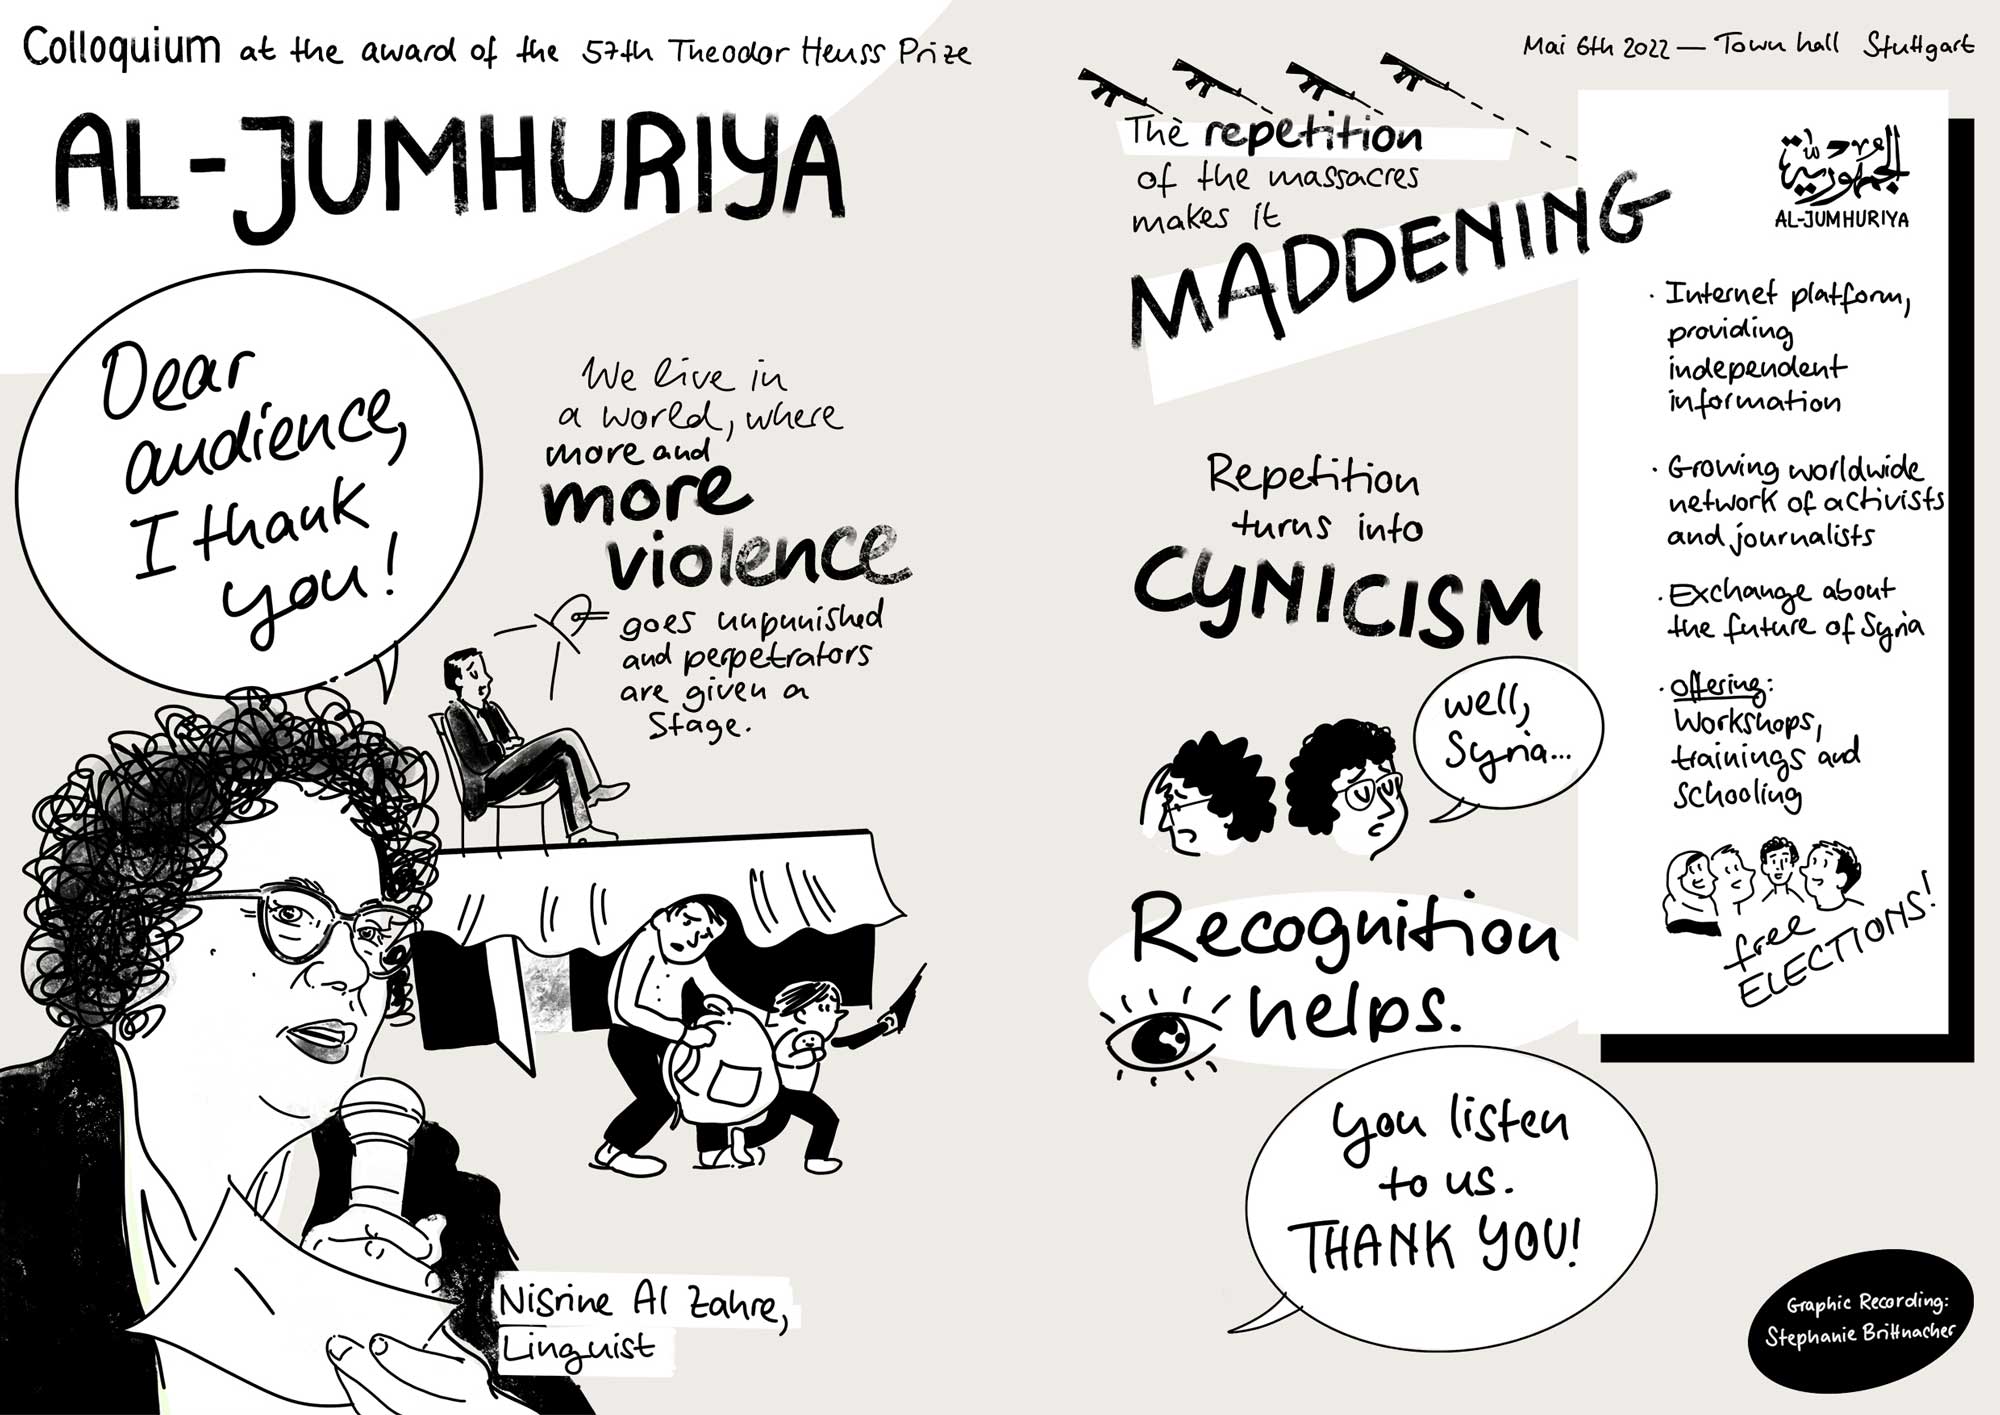 Colloquium at the award of the 57th Theodor Heuss Prize
Mai 6th 2022 — Town hall Stuttgart
AL-JUMHURIYA
Dear
audience,
I thank
you!
We live in
a world, where
more and
more
violence
goes unpunished
and perpetrators
are given a
stage.
Nisrine Al Zahre,
Linguist
The repetition
of the massacres
makes it
MADDENING
Repetition
turns into
CYNICISM
well,
Syria...
Recognition
helps.
you listen
to us.
THANK YOU!
الجمهورية
AL-JUMHURIYA
· Internet platform,
providing
independent
information
· Growing worldwide
network of activists
and journalists
· Exchange about
the future of Syria
· Offering:
Workshops,
trainings and
Schooling
free
ELECTIONS!
Graphic Recording:
Stephanie Brittnacher